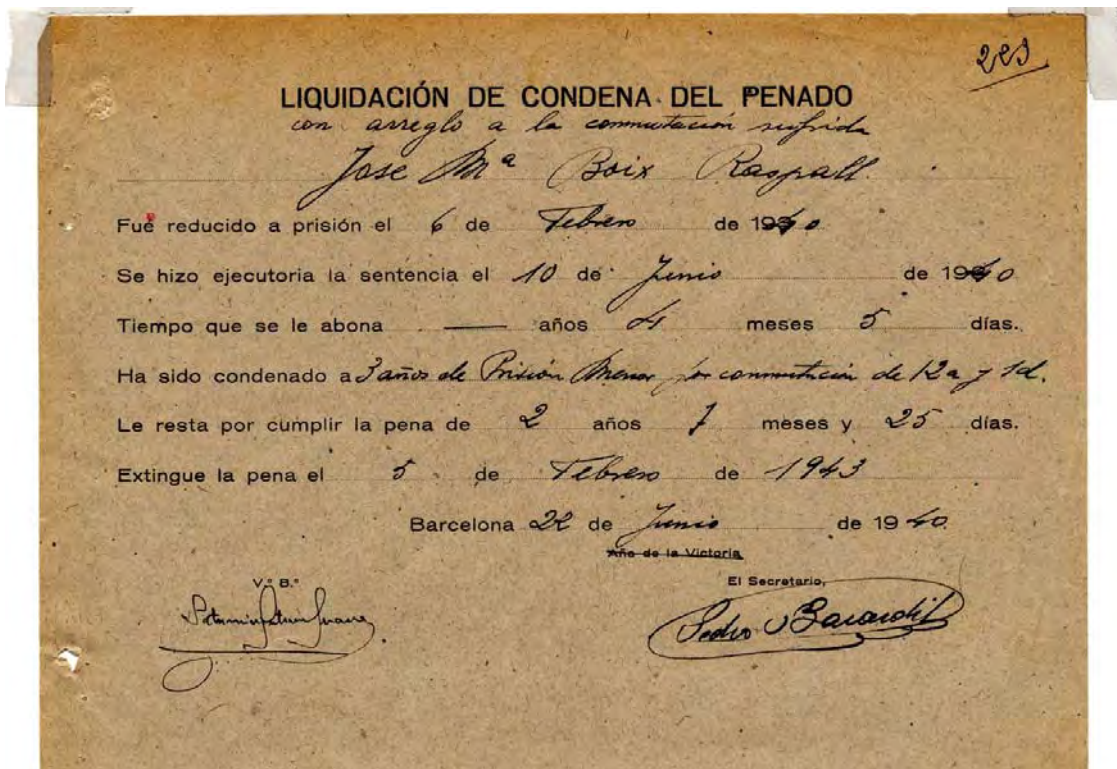 223
LIQUIDACIÓN DE CONDENA DEL PENADO
con arreglo a la conmutación sufrida
Jose Mª Boix Raspall
Fué reducido a prisión el 6 de Febrero de 1940
Se hizo ejecutoria la sentencia el 10 de Junio de 1940
Tiempo que se le abona — años 4 meses 5 días.
Ha sido condenado a 3 años de Prisión Menor por conmutación de 12 a y 1 d.
Le resta por cumplir la pena de 2 años 7 meses y 25 días.
Extingue la pena el 5 de Febrero de 1943
Barcelona 22 de Junio de 1940
Año de la Victoria
V.º B.º
El Secretario,
Pedro